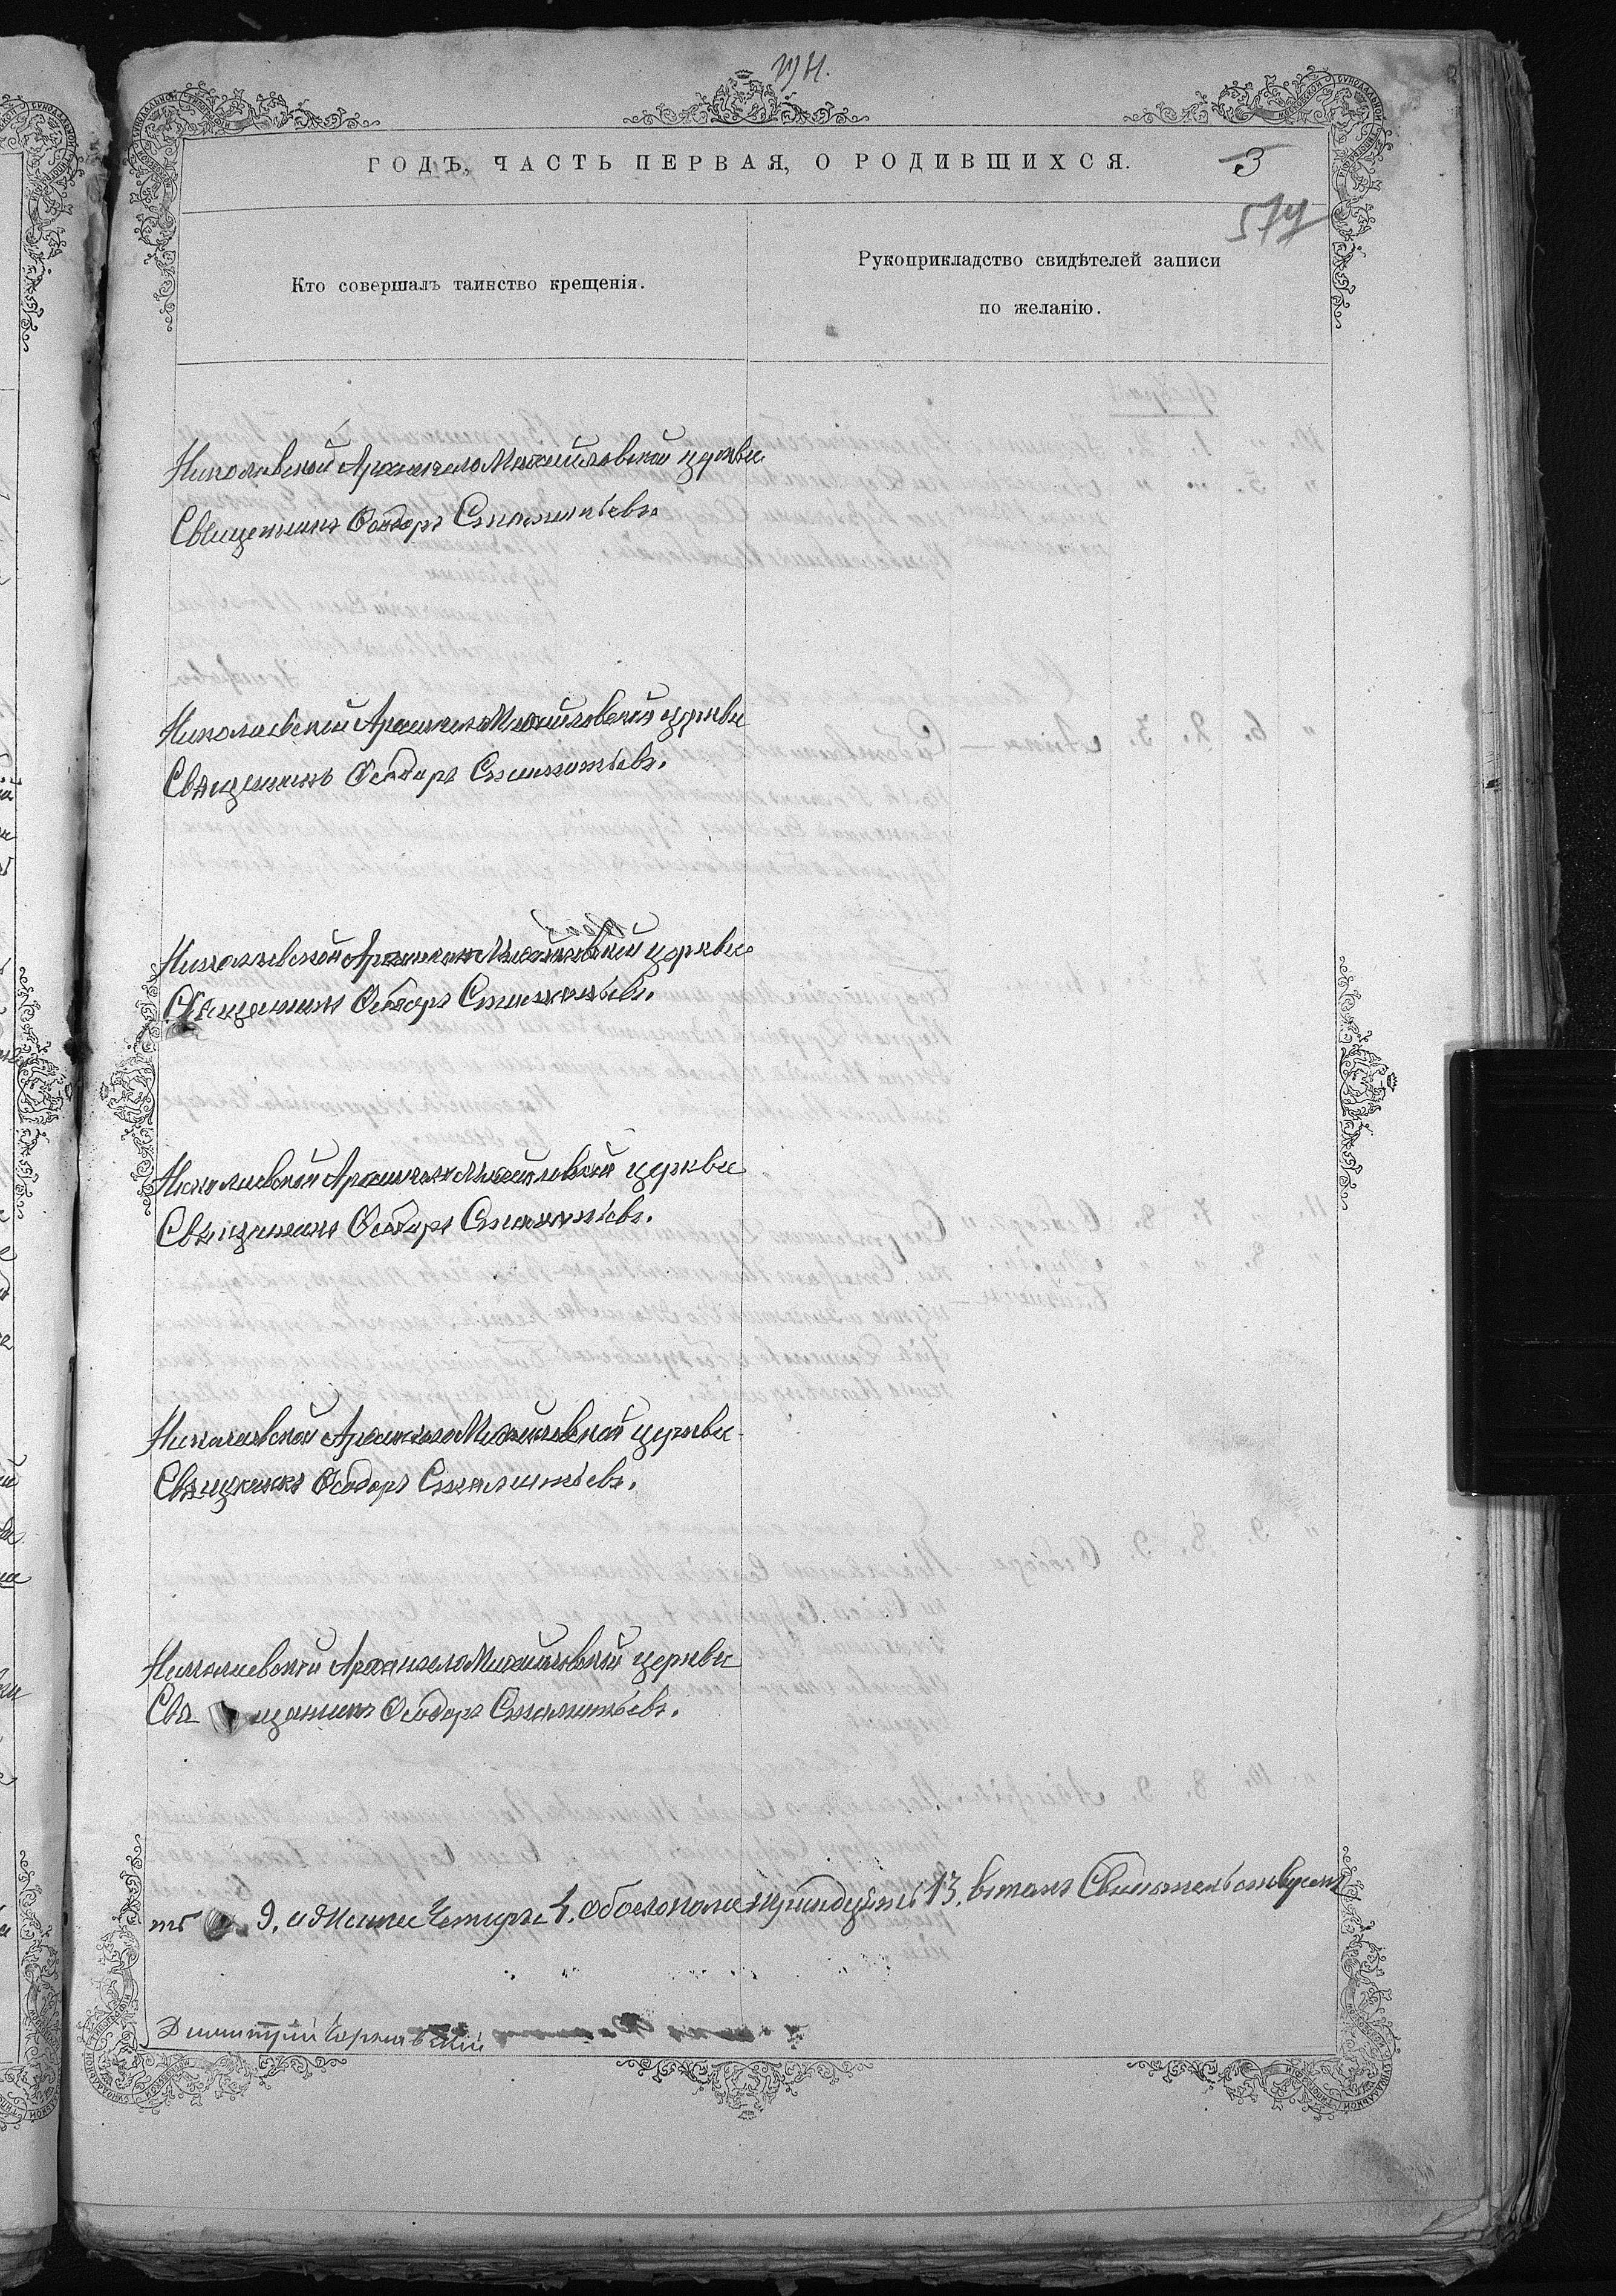 ГОДЪ, ЧАСТЬ ПЕРВАЯ, О РОДИВШИХСЯ.
3
Кто совершалъ таинство крещенія.
Рукоприкладство свидѣтелей записи
по желанію.
Николаевской Архангело Михайловской церкви
Священникъ Ѳеодоръ
Николаевской Архангело Михайловской церкви
Священникъ Ѳеодоръ
Николаевской Архангело Михайловской церкви
Священникъ Ѳеодоръ
Николаевской Архангело Михайловской церкви
Священникъ Ѳеодоръ
Николаевской Архангело Михайловской церкви
Священникъ Ѳеодоръ
Николаевской Архангело Михайловской церкви
Священникъ Ѳеодоръ
9. и женска четыре 4. обоего пола тринадцать 13. в томъ Свидетельствуемъ
Димитрий